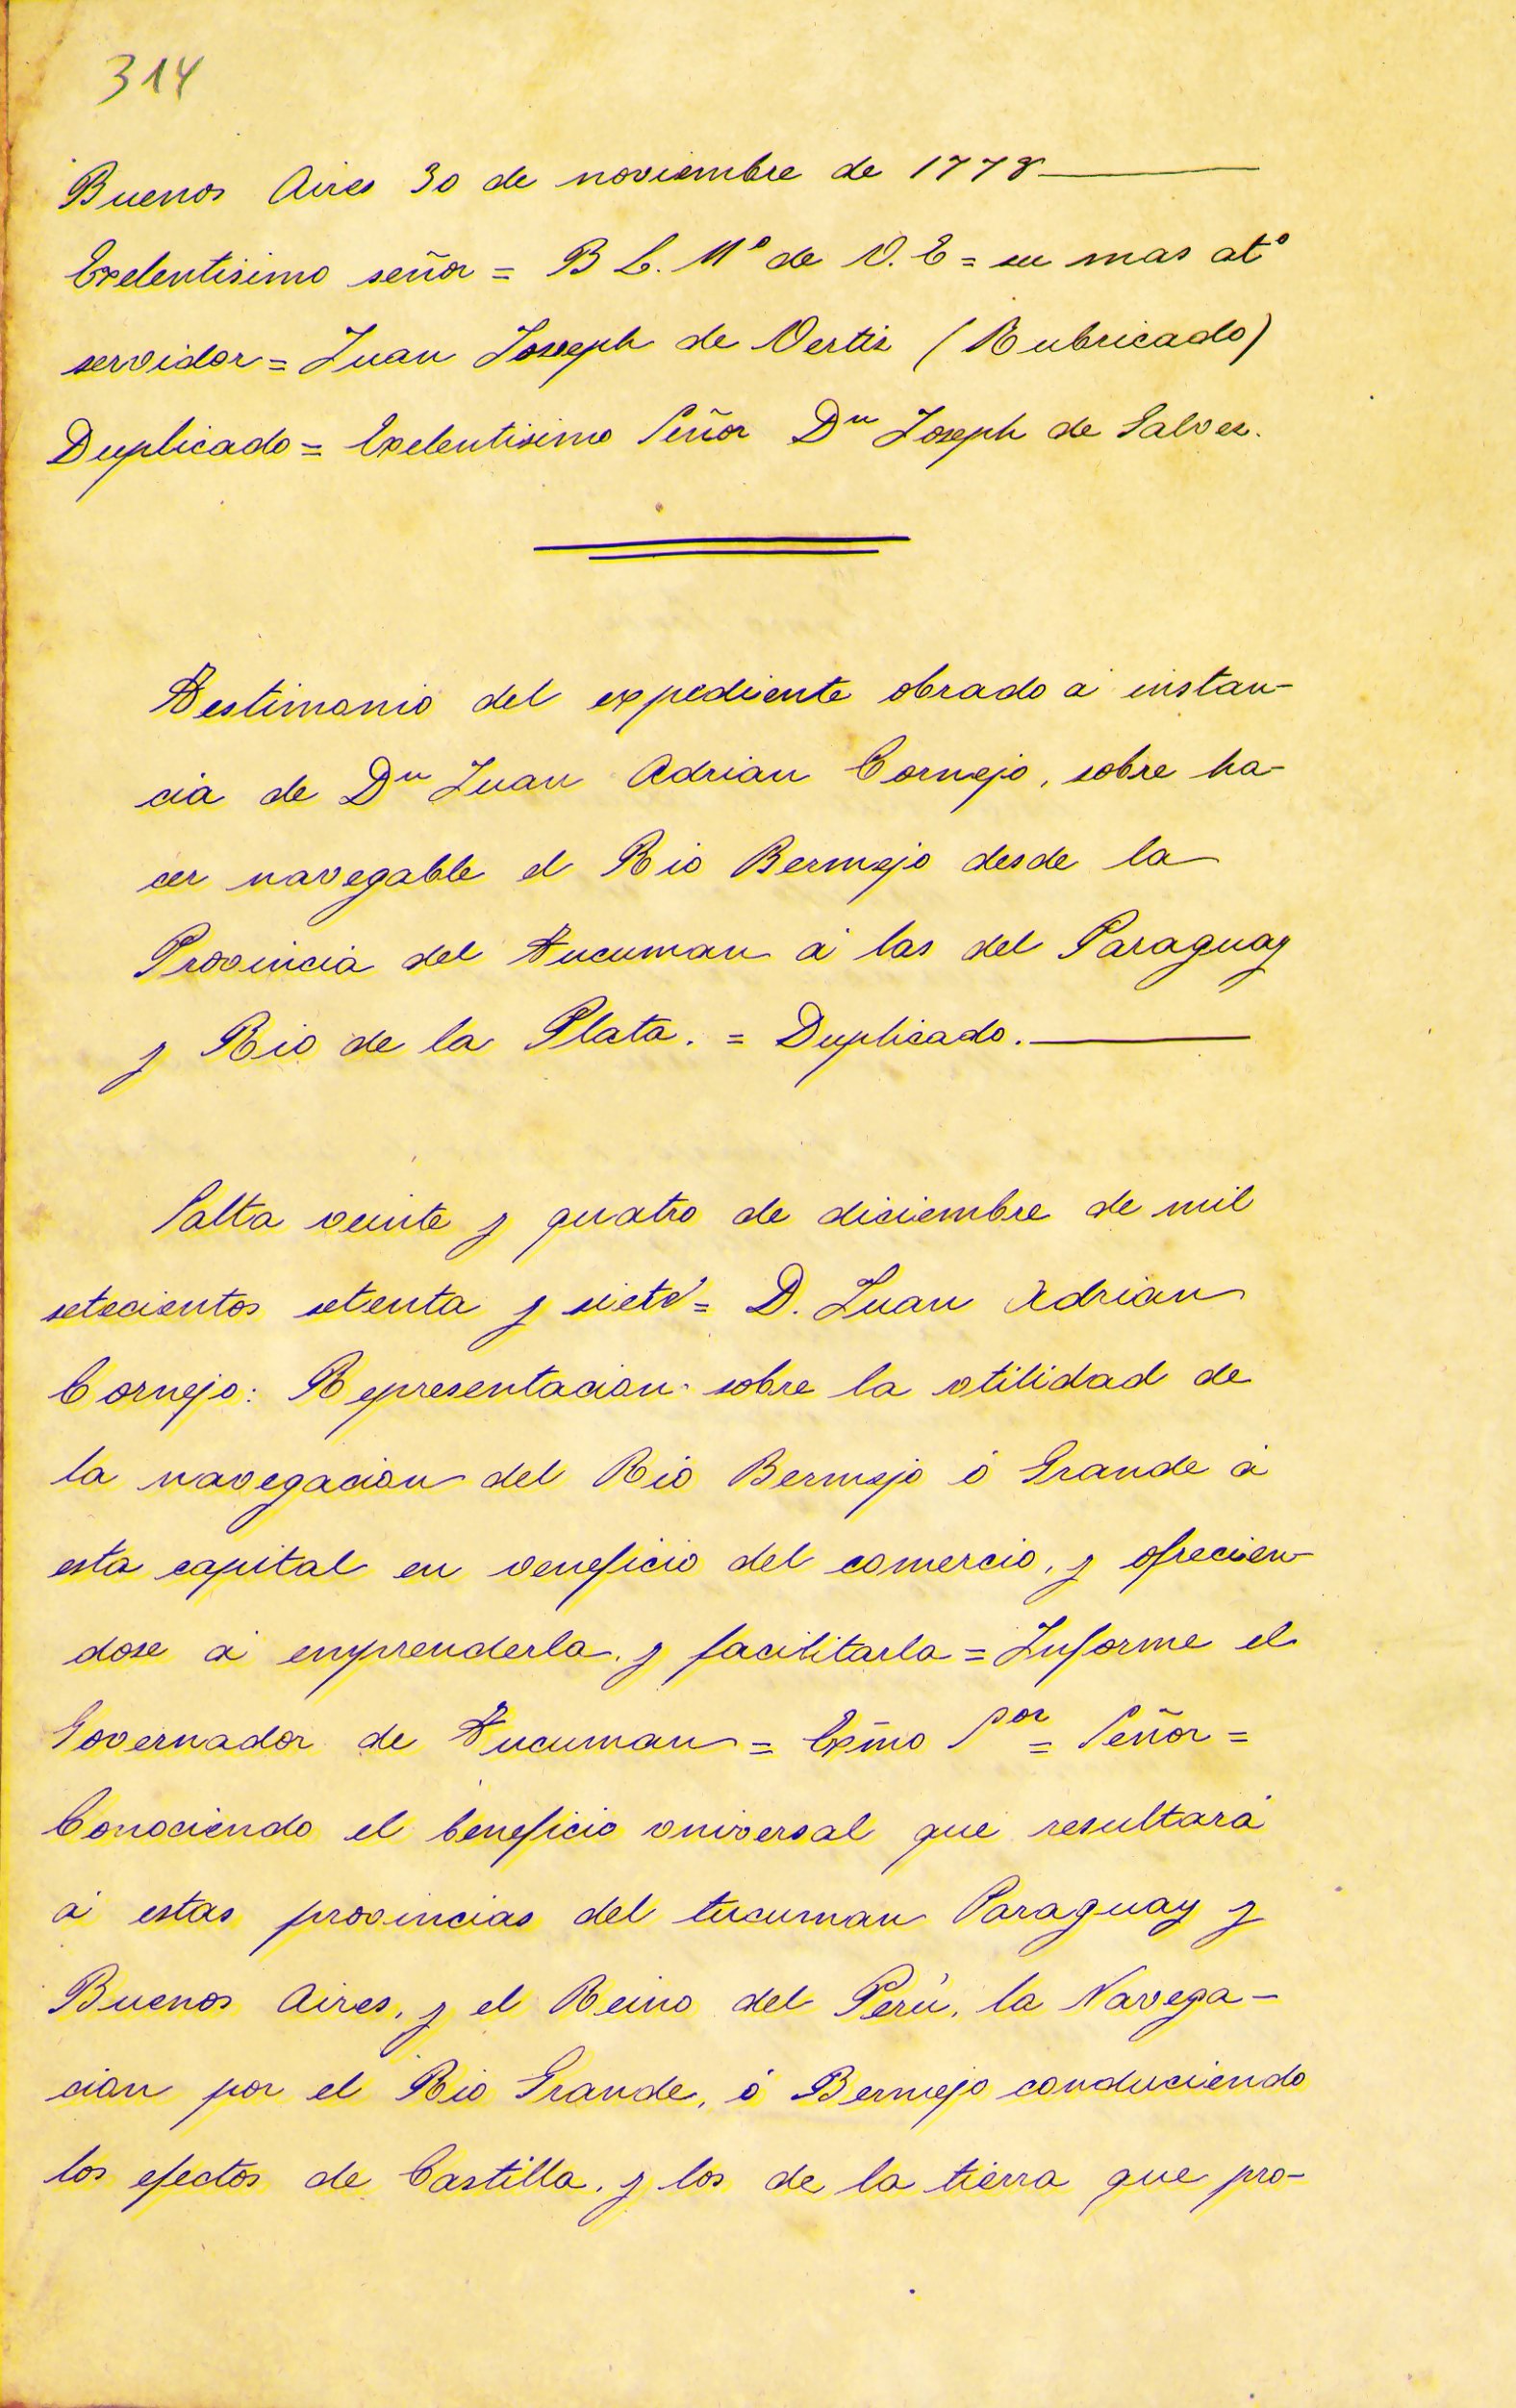 314
Buenos Aires 30 de noviembre de 1778
Exelentisimo señor = B L. Mº de V. E = su mas atº
servidor = Juan Joseph de Vertiz (Rubricado)
Duplicado = Exelentisimo Señor Dn Joseph de Galvez.
Testimonio del expediente obrado á instan-
cia de Dn Juan Adrian Cornejo, sobre ha-
cer navegable el Rio Bermejo desde la
Provincia del Tucuman á las del Paraguay
y Rio de la Plata. = Duplicado.
Salta veinte y quatro de diciembre de mil
setecientos setenta y siete = D. Juan Adrian
Cornejo: Representacion sobre la vtilidad de
la navegacion del Rio Bermejo ó Grande á
esta capital en veneficio del comercio, y ofrecien-
dose á emprenderla, y facilitarla = Informe el
Governador de Tucuman = Exm̃o Sor = Señor =
Conociendo el beneficio vniversal que resultará
á estas provincias del tucuman Paraguay y
Buenos Aires, y el Reino del Perú, la Navega-
cion por el Rio Grande, ó Bermejo conduciendo
los efectos de Castilla, y los de la tierra que pro-